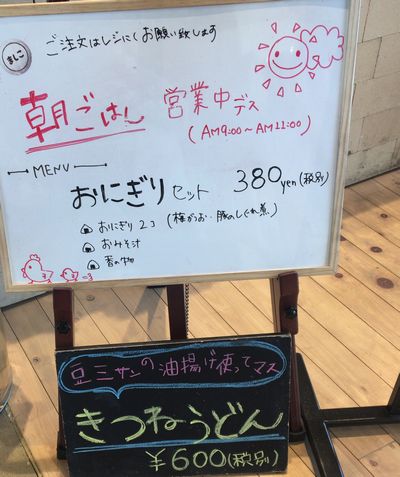 ましこ
ご注文はレジにてお願い致します
朝ごはん 営業中デス
(AM9:00~AM11:00)
MENU
おにぎりセット 380yen(税別)
おにぎり2コ (梅がつお・豚のしぐれ煮)
おみそ汁
香の物
豆三サンの油揚げ使ってマス
きつねうどん
¥600(税別)